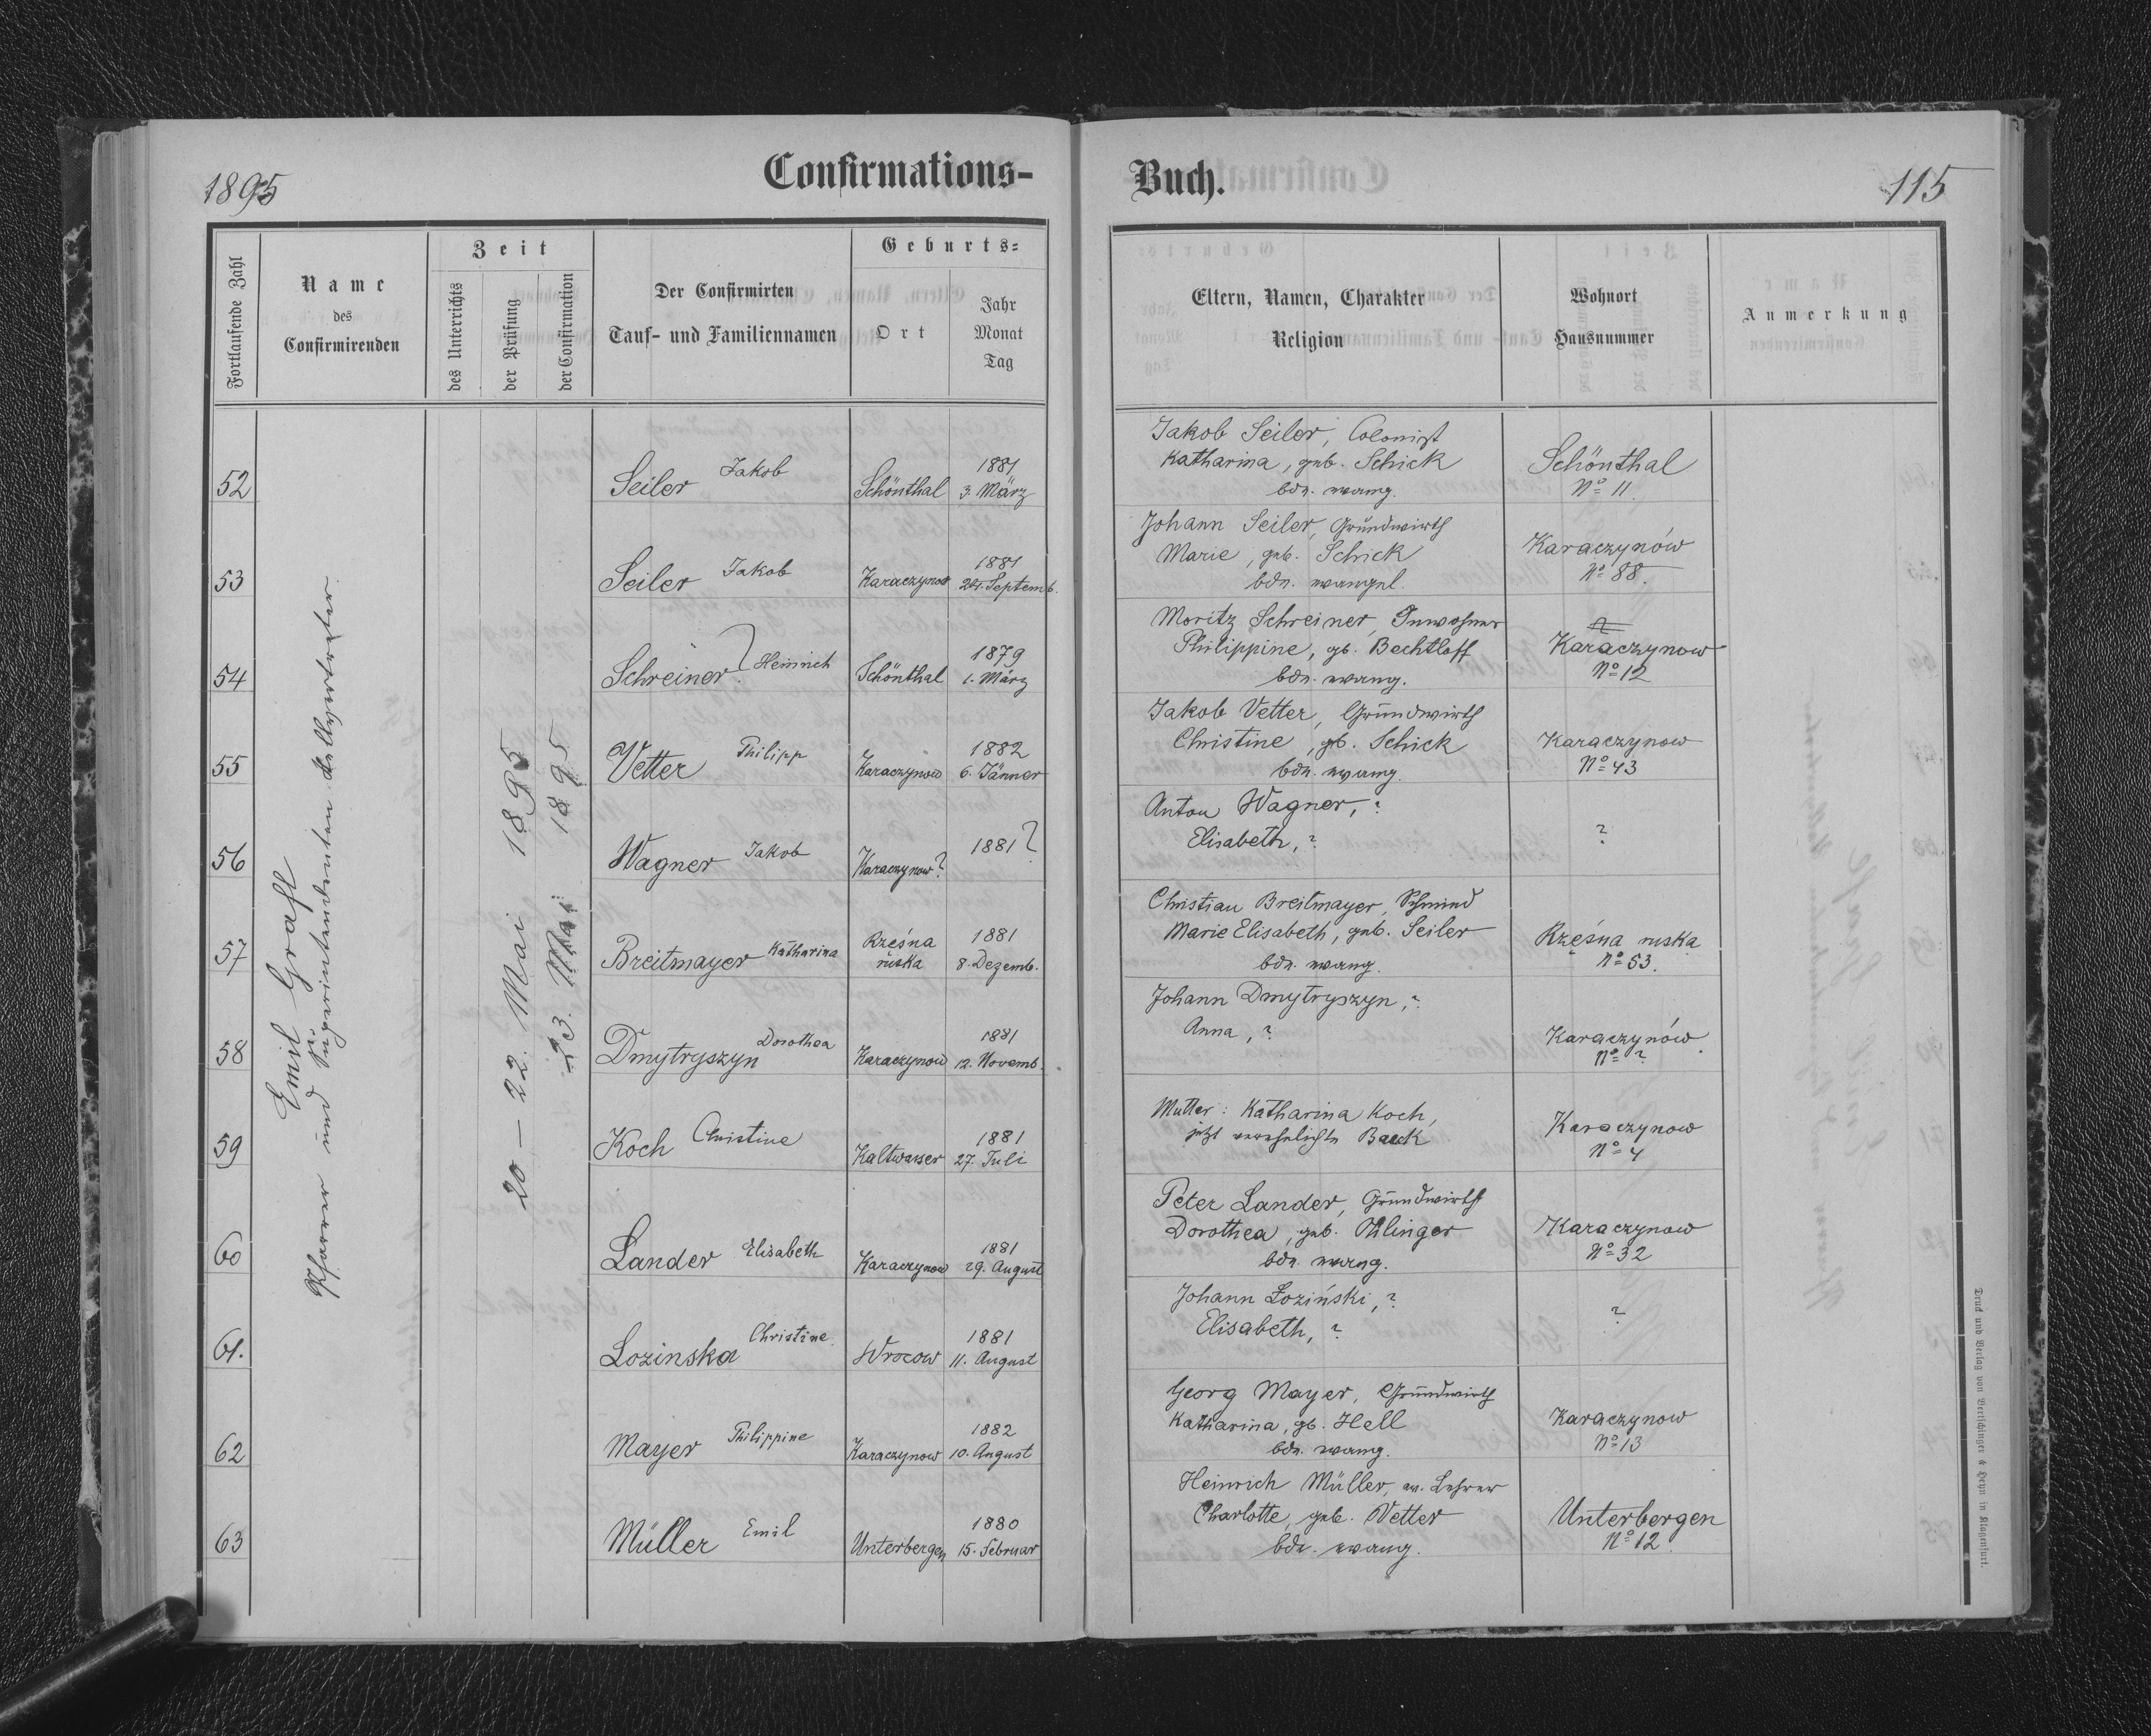 1895
Confirmations-
Buch.
115
Fortlaufende Zahl
Name
des
Confirmirenden
Zeit
des Unterrichts
der Prüfung
der Confirmation
Der Confirmirten
Tauf- und Familiennamen
Geburts=
Ort
Jahr
Monat
Tag
Eltern, Namen, Charakter
Religion
Wohnort
Hausnummer
Anmerkung
Emil Grafl
Pfarrer und Superintendenten-Stellvertreter.
20 – 22. Mai 1895
23. Mai 1895
52
Seiler Jakob
Schönthal
1881
3. März
Jakob Seiler, Colonist
Katharina, geb. Schick
bde. evang.
Schönthal
Nº 11
53
Seiler Jakob
Karaczynow
1881
24. Septemb.
Johann Seiler, Grundwirth
Marie, geb. Schick
bde. evangel.
Karaczynów
Nº 88.
54
Schreiner? Heinrich
Schönthal
1879
1. März
Moritz Schreiner, Inwohner
Philippine, gb. Bechtloff
bde. evang.
Karaczynow
Nº 12
55
Vetter Philipp
Karaczynow
1882
6. Jänner
Jakob Vetter, Grundwirth
Christine, gb. Schick
bde. evang.
Karaczynow
Nº 43
56
Wagner Jakob
Karaczynow?
1881?
Anton Wagner, ?
Elisabeth, ?
?
57
Breitmayer Katharina
Rzęsna
ruska
1881
8. Dezemb.
Christian Breitmayer, Schmied
Marie Elisabeth, geb. Seiler
bde. evang.
Rzęsna ruska
Nº 53.
58
Dmytryszyn Dorothea
Karaczynow
1881
12. Novemb.
Johann Dmytryszyn, ?
Anna, ?
Karaczynów
Nº ?
59
Koch Christine
Kaltwasser
1881
27. Juli
Mutter: Katharina Koch,
jetzt verehelichte Bauk
Karaczynow
Nº 4
60
Lander Elisabeth
Karaczynow
1881
29. August
Peter Lander, Grundwirth
Dorothea, geb. Ohlinger
bde. evang.
Karaczynow
Nº 32
61.
Lozinska Christine
Wrocow
1881
11. August
Johann Łoziński, ?
Elisabeth, ?
?
62
Mayer Philippine
Karaczynow
1882
10. August
Georg Mayer, Grundwirth
Katharina, gb. Hell
bde. evang.
Karaczynow
Nº 13
63
Müller Emil
Unterbergen
1880
15. Februar
Heinrich Müller, ev. Lehrer
Charlotte, geb. Vetter
bde. evang.
Unterbergen
Nº 12
Druck und Verlag von Bertschinger & Heyn in Klagenfurt.